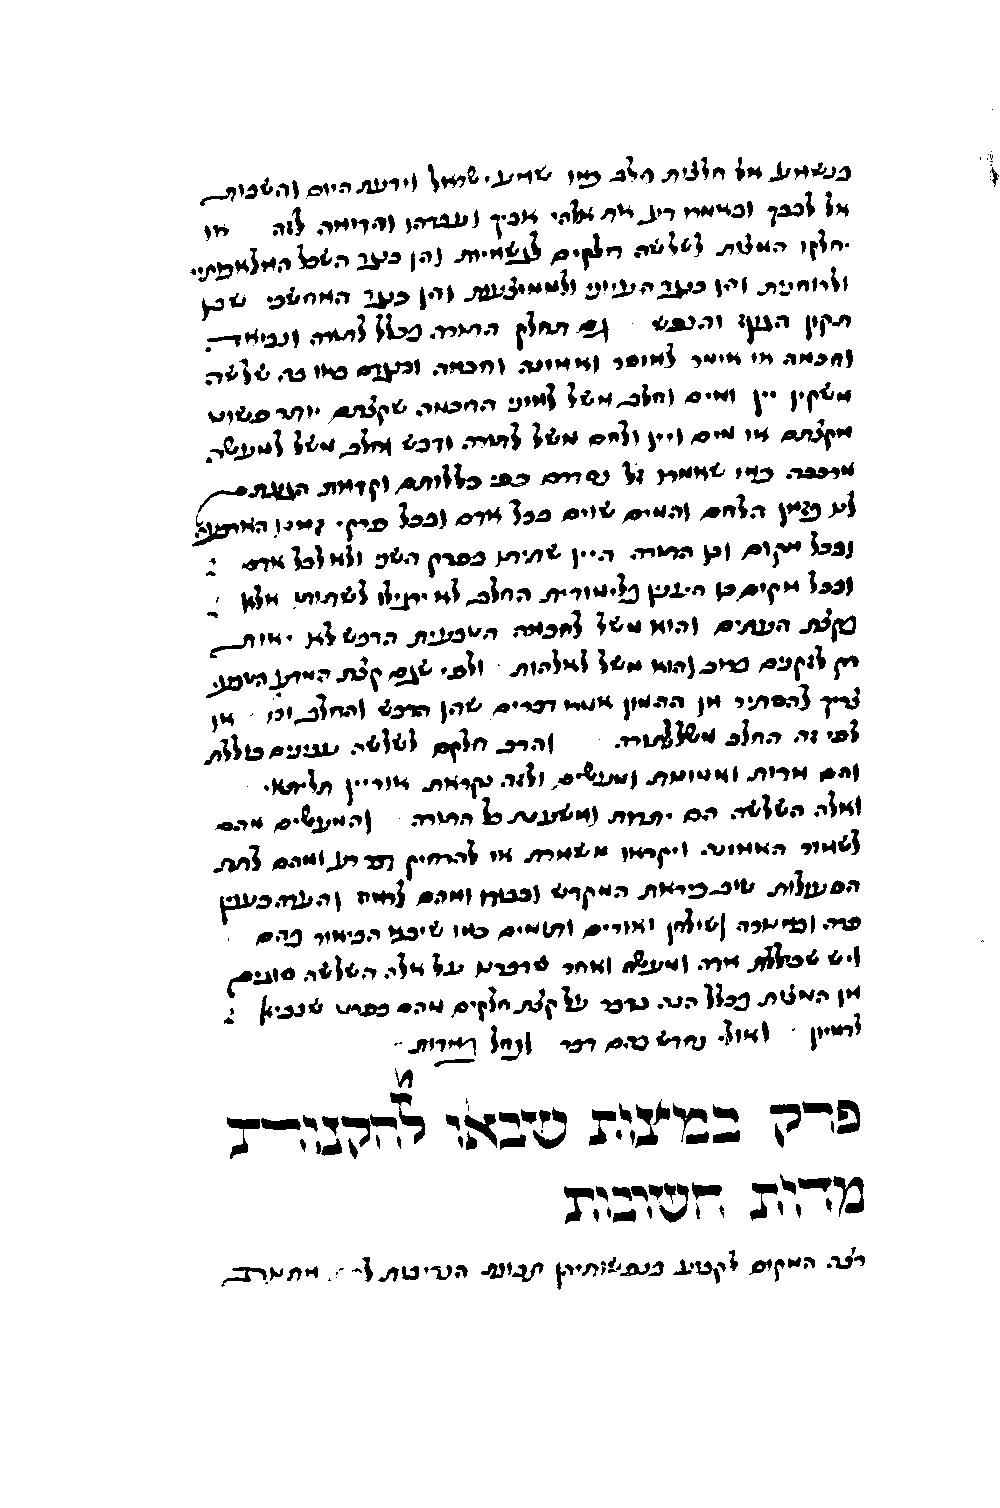 כנשמע אל חלצות הלב כמו שמע ישראל וידעת היום והשבות
אל לבבך וכאמרו דע את אלהי אביך ועבדהו והדומה לזה או
יחלקו המצות לשלשה חלקים לגשמיות והן כנגד השכל
ולרוחניות והן כנגד העיוני ולממוצעות והן כנגד המחשבי שבהן
תקון הגוף והנפש גם תחלק התורה בכלל לתורה ונביאים
וחכמה או אימר למוסר ואמונה וחכמה וכנגדם באו בה שלשה
משקין יין ומים וחלב משל למיני החכמה שקצתם יותר פשוט
מקצתם או מים ויין ולחם משל לתורה ודבש וחלב משל למעשה
מרכבה כמו שאמרו זל נסדרם כפי כללותם וקדמות
לו בזמן הלחם והמים שוים בכל אדם ובכל פרק
ובכל מקום וכן התורה היין שתיתו בפרק השני ולא לכל אדם
ובכל מקום כן היבין בלימודית החלב לא ירגילו לשתותו אלא
בקצת העתים והוא משל לחכמה הטבעית הדבש לא יאות
רק לזקנים ברוב והוא משל לאלהות ולפי שגם קצת המדע הטבעי
צריך להסתיר מן ההמון אמרו דברים שהן הדבש והחלב וכו או
לפי זה החלב משל לתורה והרב חלקם לשלשה ענינים כוללת
והם מדות ואמונות ומעשים ולזה נקראת אוריין תליתאי
ואלה השלשה הם יתדות ומשענות כל התורה והמעשים מהם
לשמור האמונה ויקראו משמרת או להרחיק דבר רע ומהם לתת
הסגולות טוב כיראת המקדש וכבודו ומהם לראיה והערה כענין
פרה וכמנורה ושולחן ואורים ותומים כמו שיבא הביאור בהם
ויש שכוללת מדה ומעשה ואחר שדברנו על אלה השלשה סוגים
מן המצות בכלל הנה נדבר על קצת חלקים מהם כפרט שנביא
לראיון ואולי נחדש בהם דבר ונחל במדות
פרק במצות שבאו להקנות
מדות חשובות
רצה המקום לקבוע בנפשותינו תכונת הנדיבות